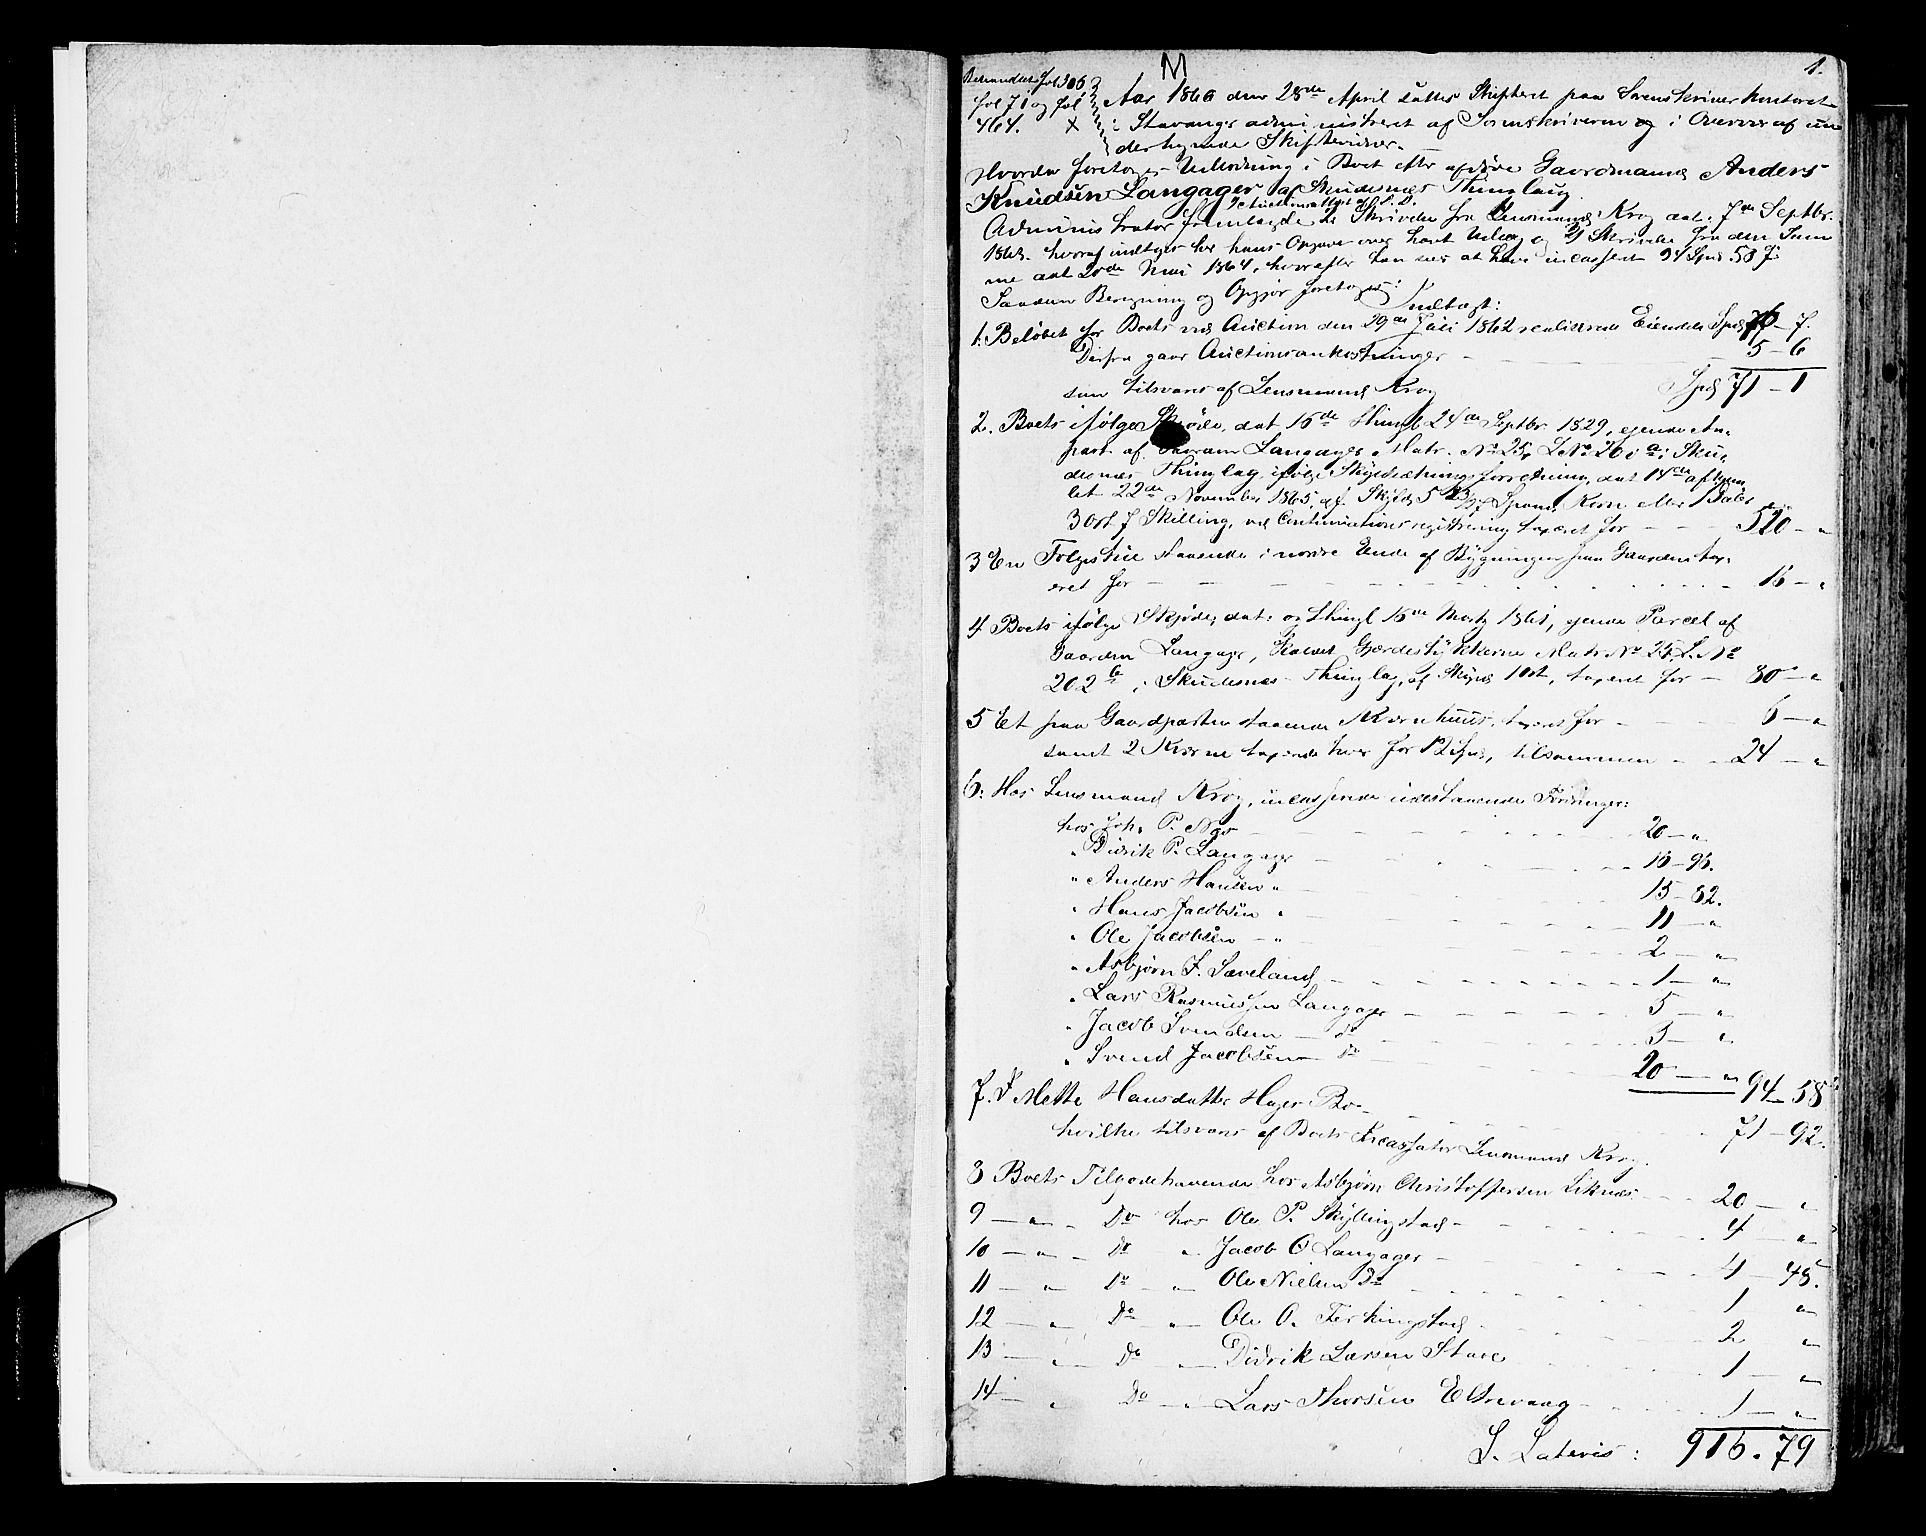 M
1.
Behandlet fol 306
fol 71 og fol
464. X
Aar 1866 den 28de April sattes Skifteret paa Sorenskriver kontoret
i Stavanger administreret af Sorenskriveren og i Overvær af un
dertegnede Skiftevidner.
Hvorda foretoges Udlodning i Boet efter afdøde Gaardmand Anders
Knudsen Langager af Skudesnæs Thinglaug
Administrator fremlagde Skrivelse fra Lensmand Krog dat. 7de Septbr.
1863. hvoraf indtages her hans Opgave over havt Udlæg og 2) Skrivelse fra den Sam
me dat 20de Mai 1864, hvorefter han sees at have incasseret 94 Spd 58 s
Saadan Beregning og Opgjør foretoges:
Indtægt:
1. Beløbet for Boets ved Auction den 29de Juli 1862 realiserede Eiendele Spd 76 - 7.
Derfra gaar Auctionsomkostninger 5 - 6
som tilsvares af Lensmand Krog Spd 71 - 1
2. Boets ifølge Skjøde, dat 16de Thingl 24de Septbr 1829, eiende An-
part af Gaarden Langager Matr. No 25, L No 26 i Sku-
desnæs Thinglag, ifølge Skyldsætningsforretning, dat 14de afhjem
let 22de November 1865, af Skyld 5 Spand Korn eller 1 Daler
3 Ort 7 Skilling, ved Continuationsregistrering taxeret for 520 - "
3 En Følgestue staaende i nordre Ende af Bygningen paa Gaarden tax-
eret for 16 - "
4 Boets ifølge Skjøde, dat: og thingl 16de Marts 1861, eiende Parcel af
Gaarden Langager, kaldet Gjærdestykkerne Matr No 25, L. No
202 b i Skudesnæs Thinglag, af Skyld 1 Ort, taxeret for 80 - "
5 Et paa Gaardparten staaende Kværnhuus, taxeret for 6 - "
samt 2 Kværne taxerede hver for 12 Spd, tilsammen 24 - "
6. Hos Lensmand Krog, incasserede udestaaende Fordringer:
hos Joh. P. Næs 20 - "
" Didrik P. Langager 16 - 96.
" Anders Hansen " 15 - 82.
" Hans Jacobsen " 11 - "
" Ole Jacobsen - " 2 - "
" Asbjørn J. Sæveland 1 - "
" Lars Rasmussen Langager 5 - "
" Jacob Svendsen - do 3 - "
" Svend Jacobsen - do 20 - " 94 - 58
7. I Mette Hansdatter Høier Bo - 71 - 92.
hvilke tilsvares af Boets Incassator Lensmand Krog.
8 Boets Tilgodehavende hos Asbjørn Christoffersen Liknæs 20 - "
9 - " - Do hos Ole P. Skyllingstad 4 - "
10 - " - Do " Jacob O Langager 4 - 48.
11 - " Do - " Ole Nielsen Do 1 "
12 - " Do - " Ole O. Ferkingstad 2 "
13 - " - Do " Didrik Larsen Stave 1 - "
14 - " Do - " Lars Thorsen Eltrevaag 1 - "
S. Lateris: 916. 79